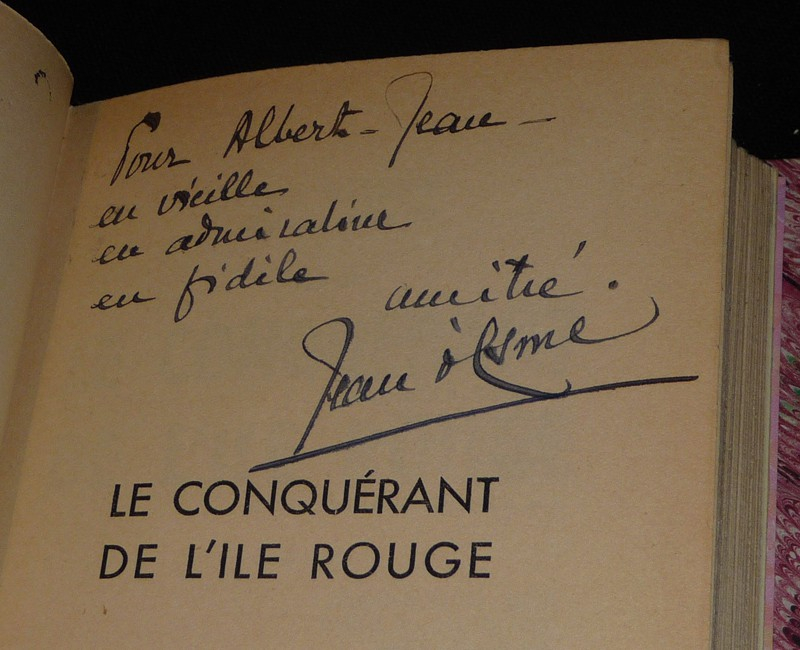 Pour Albert-Jean -
en vieille
en admirative
en fidèle
amitié.
Jean d'Esme
LE CONQUÉRANT
DE L'ILE ROUGE